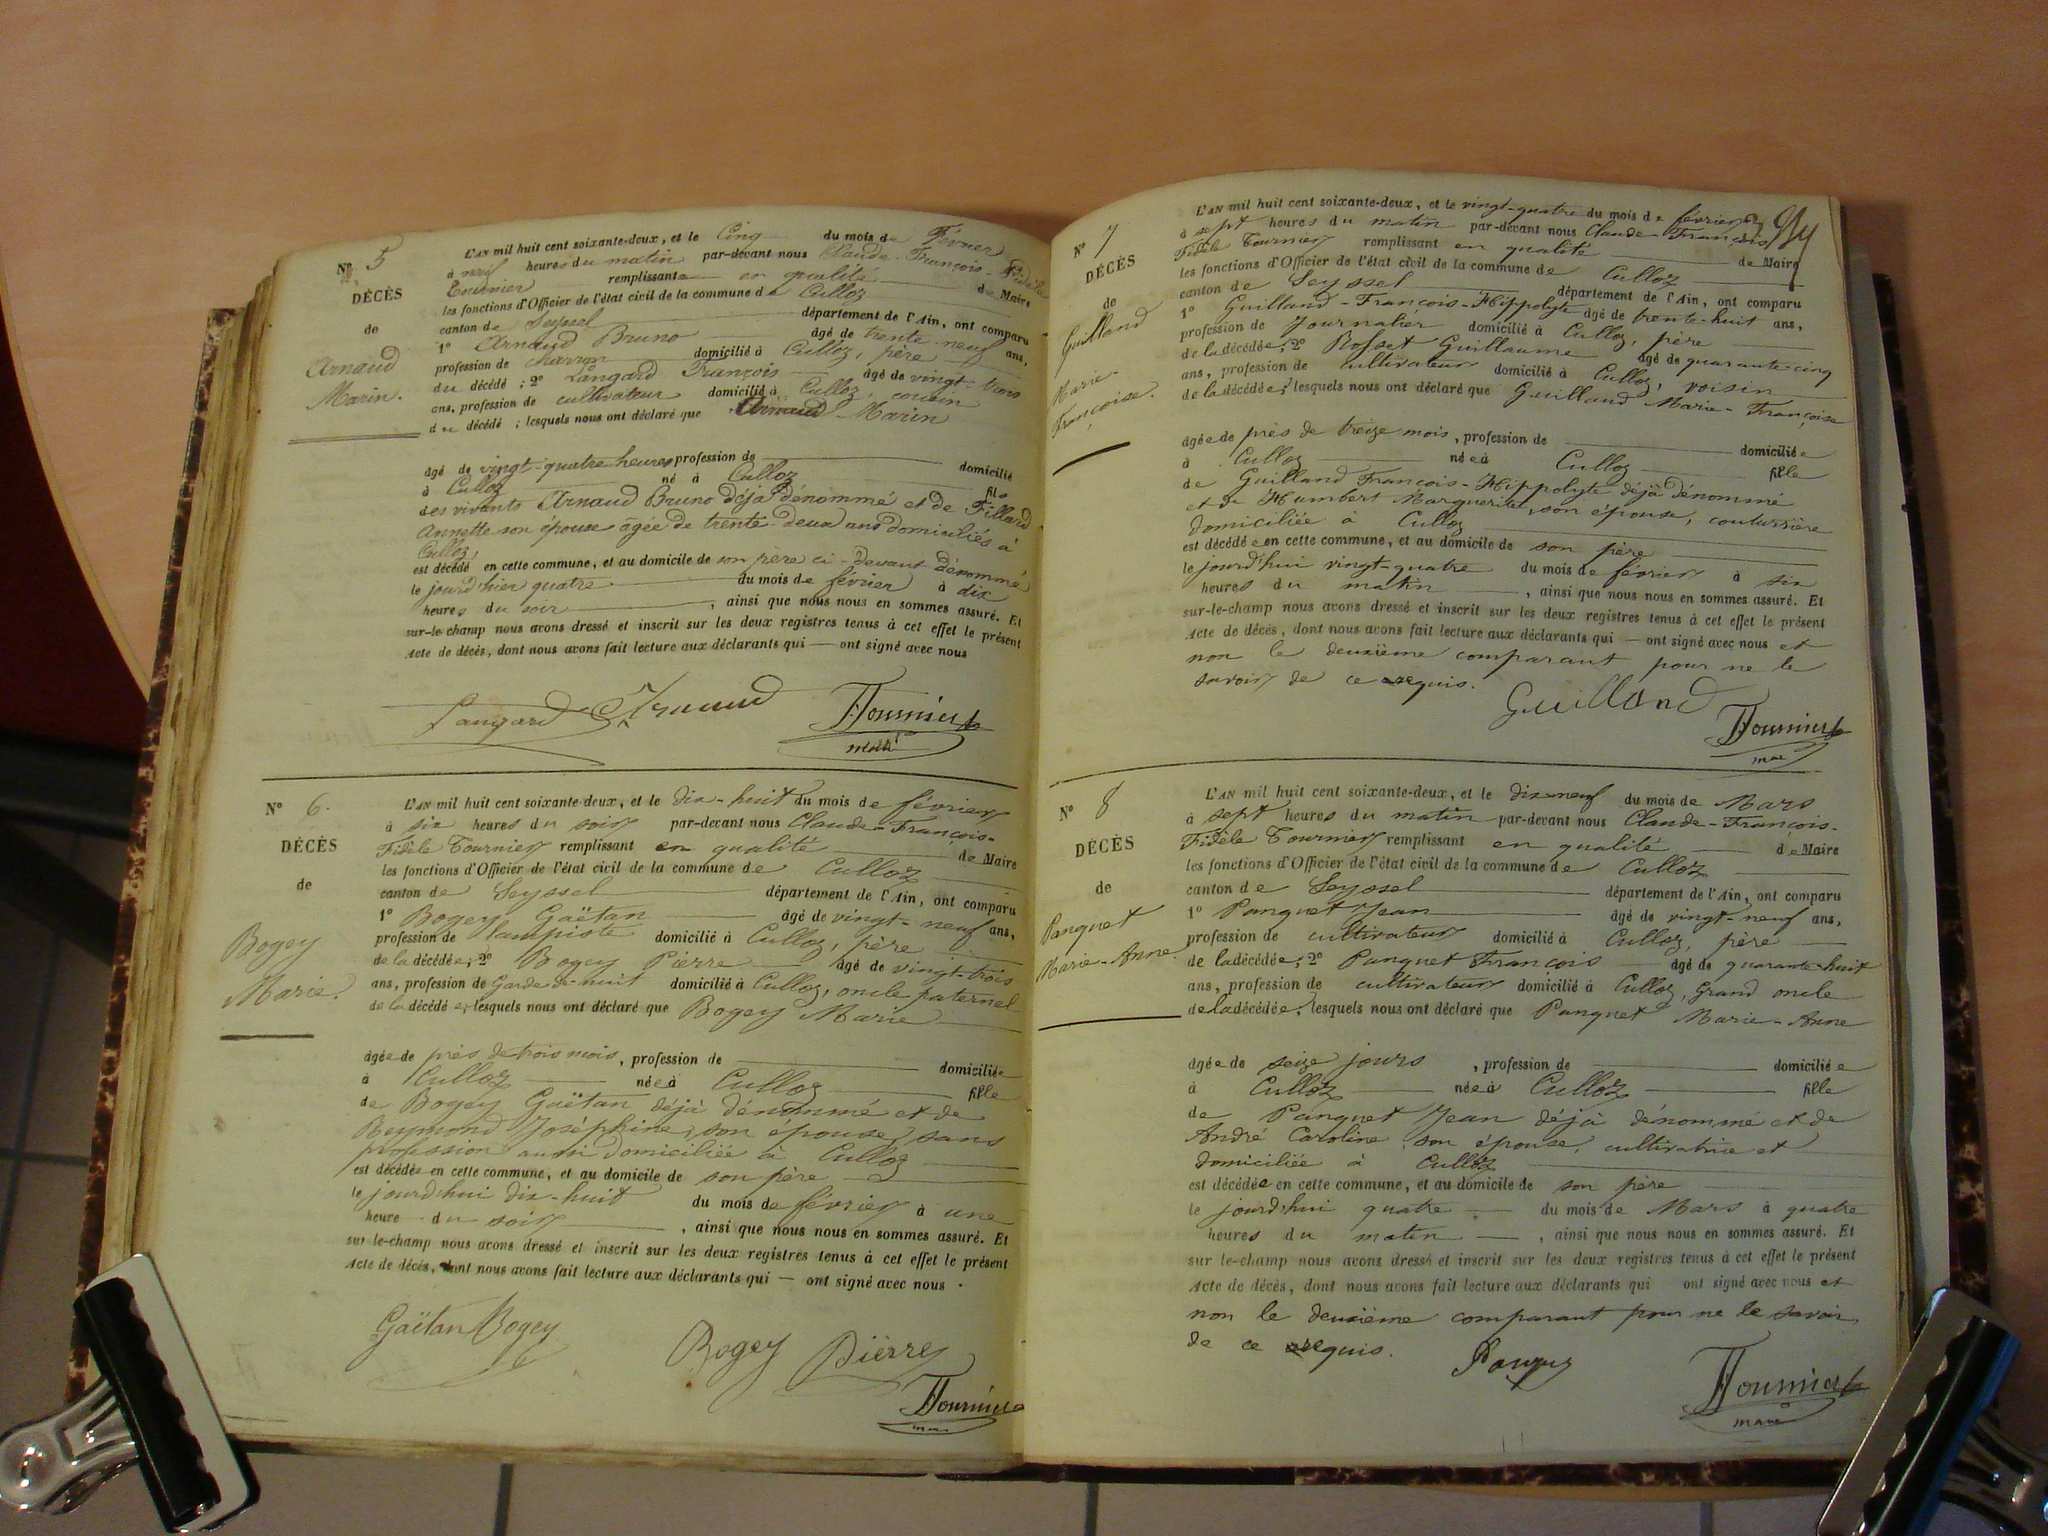 N° 5
DÉCÈS
de
Arnaud
Marin.
L'AN mil huit cent soixante-deux, et le Cinq du mois de Février
à neuf heures du matin par-devant nous Claude-François-Fidèle
Tournier remplissant en qualité de Maire
les fonctions d'Officier de l'état civil de la commune de Culloz
canton de Seyssel département de l'Ain, ont comparu
1° Arnaud Bruno âgé de trente-neuf ans,
profession de charron domicilié à Culloz, père
du décédé ; 2° Langard François âgé de vingt-trois
ans, profession de cultivateur domicilié à Culloz, cousin
du décédé ; lesquels nous ont déclaré que Arnaud Marin
âgé de vingt-quatre heures profession de domicilié
à Culloz né à Culloz fils
des vivants Arnaud Bruno déjà dénommé et de Fillard
Annette son épouse âgée de trente-deux ans domiciliés à
Culloz
est décédé en cette commune, et au domicile de son père ci-devant dénommé
le jourd'hier quatre du mois de février à dix
heures du soir , ainsi que nous nous en sommes assuré. Et
sur-le-champ nous avons dressé et inscrit sur les deux registres tenus à cet effet le présent
Acte de décès, dont nous avons fait lecture aux déclarants qui — ont signé avec nous
Langard Arnaud Tournier
maire
N° 6.
DÉCÈS
de
Bogey
Marie.
L'AN mil huit cent soixante-deux, et le dix-huit du mois de février
à six heures du soir par-devant nous Claude-François-
Fidèle Tournier remplissant en qualité de Maire
les fonctions d'Officier de l'état civil de la commune de Culloz
canton de Seyssel département de l'Ain, ont comparu
1° Bogey Gaëtan âgé de vingt-neuf ans,
profession de lampiste domicilié à Culloz, père
de la décédée ; 2° Bogey Pierre âgé de vingt-trois
ans, profession de Garde de-nuit domicilié à Culloz, oncle paternel
de la décédée, lesquels nous ont déclaré que Bogey Marie
âgée de près de trois mois, profession de domiciliée
à Culloz née à Culloz fille
de Bogey Gaëtan déjà dénommé et de
Reymond Joséphine, son épouse, sans
profession aussi domiciliée à Culloz
est décédée en cette commune, et au domicile de son père
le jourd'hui dix-huit du mois de février à une
heure du soir , ainsi que nous nous en sommes assuré. Et
sur le-champ nous avons dressé et inscrit sur les deux registres tenus à cet effet le présent
Acte de décès, dont nous avons fait lecture aux déclarants qui — ont signé avec nous .
Gaëtan Bogey Bogey Pierre
Tournier
maire
N° 7
DÉCÈS
de
Guilland
Marie-
Françoise.
L'AN mil huit cent soixante-deux, et le vingt-quatre du mois de février
à sept heures du matin par-devant nous Claude-François
Fidèle Tournier remplissant en qualité de Maire
les fonctions d'Officier de l'état civil de la commune de Culloz
canton de Seyssel département de l'Ain, ont comparu
1° Guilland-François-Hippolyte âgé de trente-huit ans,
profession de Journalier domicilié à Culloz, père
de la décédée ; 2° Rosset Guillaume âgé de quarante-cinq
ans, profession de cultivateur domicilié à Culloz, voisin
de la décédée ; lesquels nous ont déclaré que Guilland Marie-Françoise
âgée de près de treize mois, profession de domiciliée
à Culloz née à Culloz fille
de Guilland François-Hippolyte déjà dénommé
et de Humbert Marguerite, son épouse, couturière
domiciliée à Culloz
est décédée en cette commune, et au domicile de son père
le jourd'hui vingt-quatre du mois de février à six
heures du matin , ainsi que nous nous en sommes assuré. Et
sur-le-champ nous avons dressé et inscrit sur les deux registres tenus à cet effet le présent
Acte de décès, dont nous avons fait lecture aux déclarants qui — ont signé avec nous et
non le deuxième comparant pour ne le
savoir de ce requis.
Guilland
Tournier
maire
N° 8
DÉCÈS
de
Panquet
Marie-Anne
L'AN mil huit cent soixante-deux, et le dix-neuf du mois de Mars
à sept heures du matin par-devant nous Claude-François-
Fidèle Tournier remplissant en qualité de Maire
les fonctions d'Officier de l'état civil de la commune de Culloz
canton de Seyssel département de l'Ain, ont comparu
1° Panquet Jean âgé de vingt-neuf ans,
profession de cultivateur domicilié à Culloz, père
de la décédée ; 2° Panquet François âgé de quarante-huit
ans, profession de cultivateur domicilié à Culloz, Grand oncle
de la décédée ; lesquels nous ont déclaré que Panquet Marie-Anne
âgée de seize jours , profession de domiciliée
à Culloz née à Culloz fille
de Panquet Jean déjà dénommé et de
André Caroline, son épouse, cultivatrice et
domiciliée à Culloz
est décédée en cette commune, et au domicile de son père
le jourd'hui quatre du mois de Mars à quatre
heures du matin , ainsi que nous nous en sommes assuré. Et
sur le-champ nous avons dressé et inscrit sur les deux registres tenus à cet effet le présent
Acte de décès, dont nous avons fait lecture aux déclarants qui ont signé avec nous et
non le deuxième comparant pour ne le savoir
de ce requis.
Tournier
maire